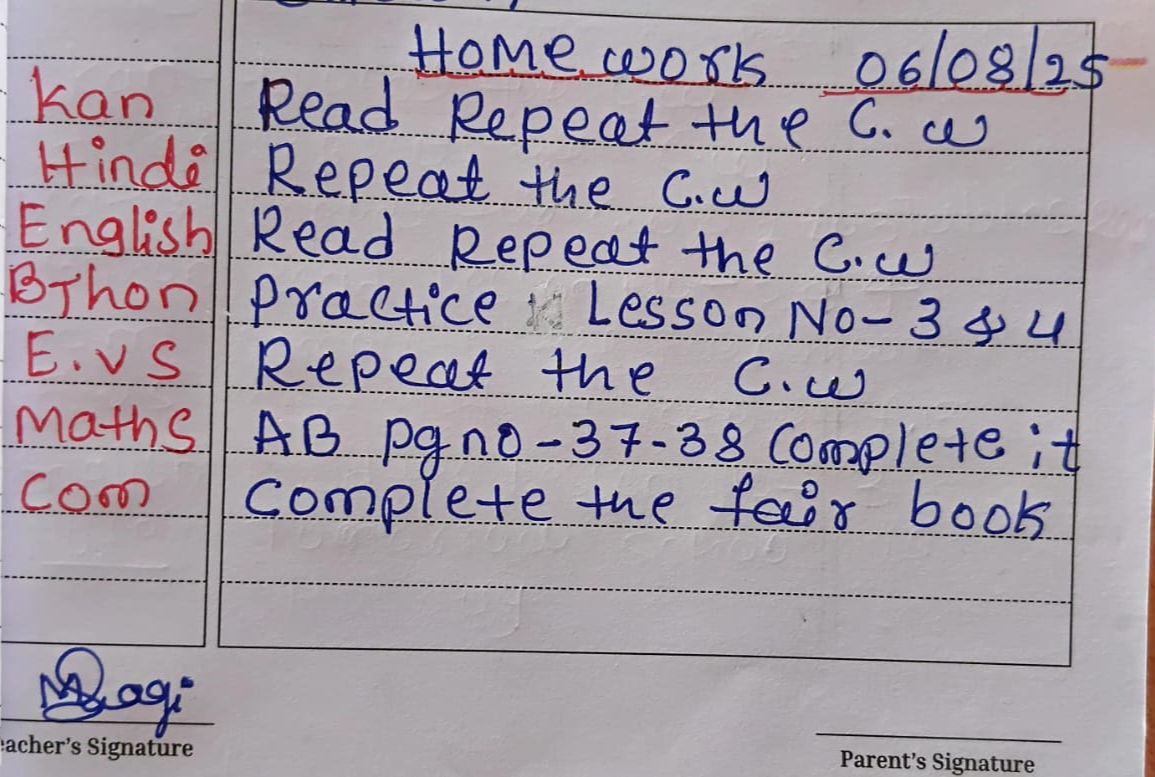 Home work 06/08/25
Kan Read Repeat the C. w
Hindi Repeat the C.w
English Read Repeat the C.w
BThon Practice Lesson No- 3 & 4
E.vs Repeat the C.w
Maths AB pg no -37-38 Complete it
Com Complete the fair book
eacher's Signature
Parent's Signature